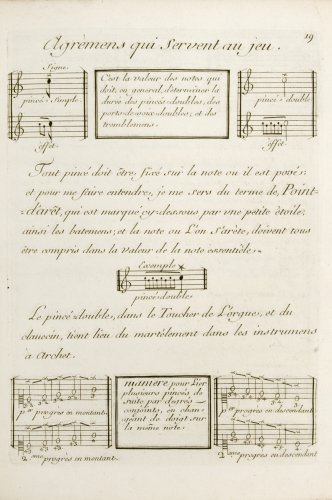 19
Agrèmens qui Servent au jeu.
Signe.
pincé-Simple.
effèt
C'est la valeur des notes qui
doit, en general, determiner la
durée des pincés-doubles, des
ports-de-voix-doubles; et des
tremblemens.
pincé-double
effèt
Tout pincé doit être, fixé sur la note ou il est posé;
et pour me faire entendre, je me sers du terme, de, Point-
d'arèt, qui est marqué cy-dessous par une petite étoile,
ainsi les batemens; et la note ou L'on S'arète, doivent tous
être compris dans la valeur de la note essentièle.
Exemple
pincé-double
Le pincé-double, dans le Toucher de L'orgue, et du
clavecin, tient lieu du martèlement dans les instrumens
à Archet.
pr. progrès en montant.
2.eme progrès en montant.
maniere pour Lier
plusieurs pincés de
suite par degrés-
conjoints, en chan-
geant de doigt sur
la même note.
pr. progrès en descendant
2.eme progrès en descendant.